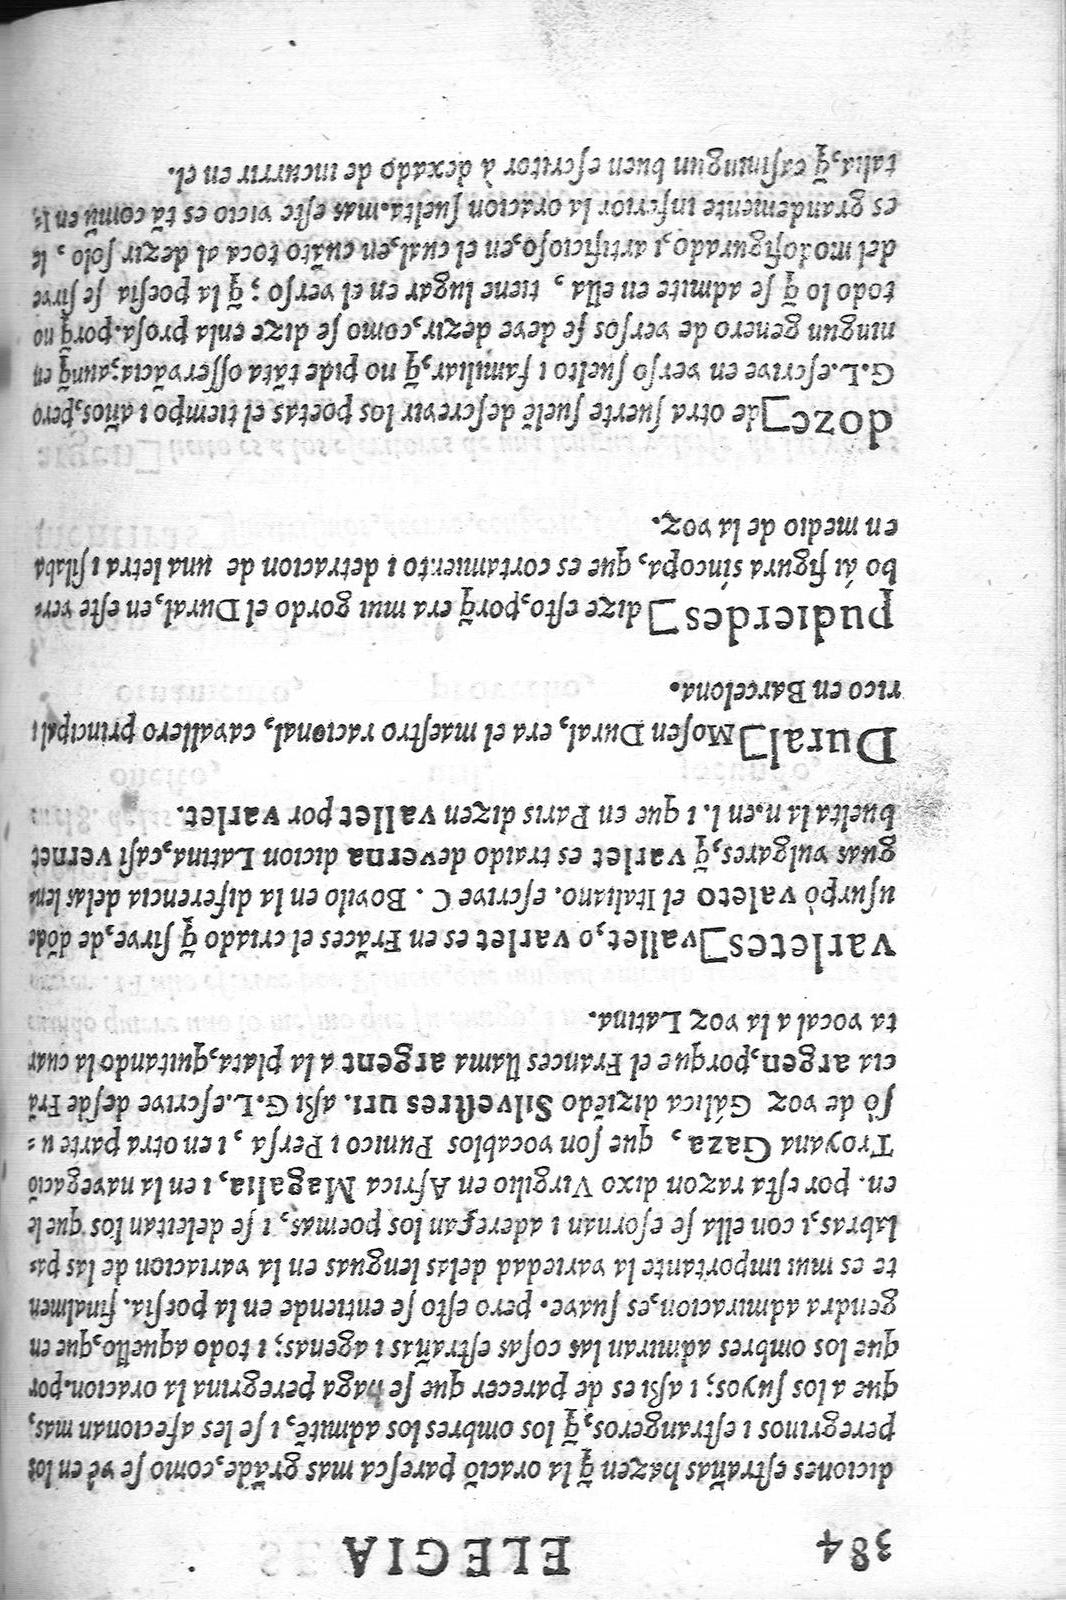 384 ELEGIA
diciones estrañas hazen q̃ la oració paresca mas grãde, como se vè en los
peregrinos i estrangeros, q̃ los ombres los admitē, i se les afecionan mas,
que a los suyos; i aßi es de parecer que se haga peregrina la oracion. por
que los ombres admiran las cosas estrañas i agenas; i todo aquello, que en
gendra admiracion, es suave. pero esto se entiende en la poesia. finalmen
te es mui importante la variedad delas lenguas en la variacion de las pa=
labras, i con ella se esornan i adereçan los poemas, i se deleitan los que le
en. por esta razon dixo Virgilio en Africa Magalia, i en la navegació
Troyana Gaza, que son vocablos Punico i Persa, i en otra parte u=
sò de voz Gálica diziēdo Silvestres uri. aßi G.L. escrive desde Frã
cia argen, porque el Frances llama argent a la plata, quitando la cuar
ta vocal a la voz Latina.
varletes] vallet, o varlet es en Frãces el criado q̃ sirve, de dõde
usurpò valeto el Italiano. escrive C. Bovilo en la diferencia delas len=
guas vulgares, q̃ varlet es traido de verna dicion Latina, casi vernet
buelta la n. en. l. i que en Paris dizen vallet por varlet.
Dural] Mosen Dural, era el maestro racional, cavallero principal i
rico en Barcelona.
pudierdes] dize esto, porq̃ era mui gordo el Dural, en este ver=
bo ái figura síncopa, que es cortamiento i detracion de una letra i silaba
en medio de la voz.
doze] de otra suerte suelē descrevir los poetas el tiempo i años, pero
G.L. escrive en verso suelto i familiar, q̃ no pide tãta osservácia; aunq̃ en
ningun genero de versos se deve dezir, como se dize enla prosa. porq̃ no
todo lo q̃ se admite en ella, tiene lugar en el verso; q̃ la poesia se sirve
del modo figurado, i artificioso, en el cual, en cuãto toca al dezir solo, le
es grandemente inferior la oracion suelta. mas este vicio es tã comũ en I=
talia, q̃ casi ningun buen escritor à dexado de incurrir en el.